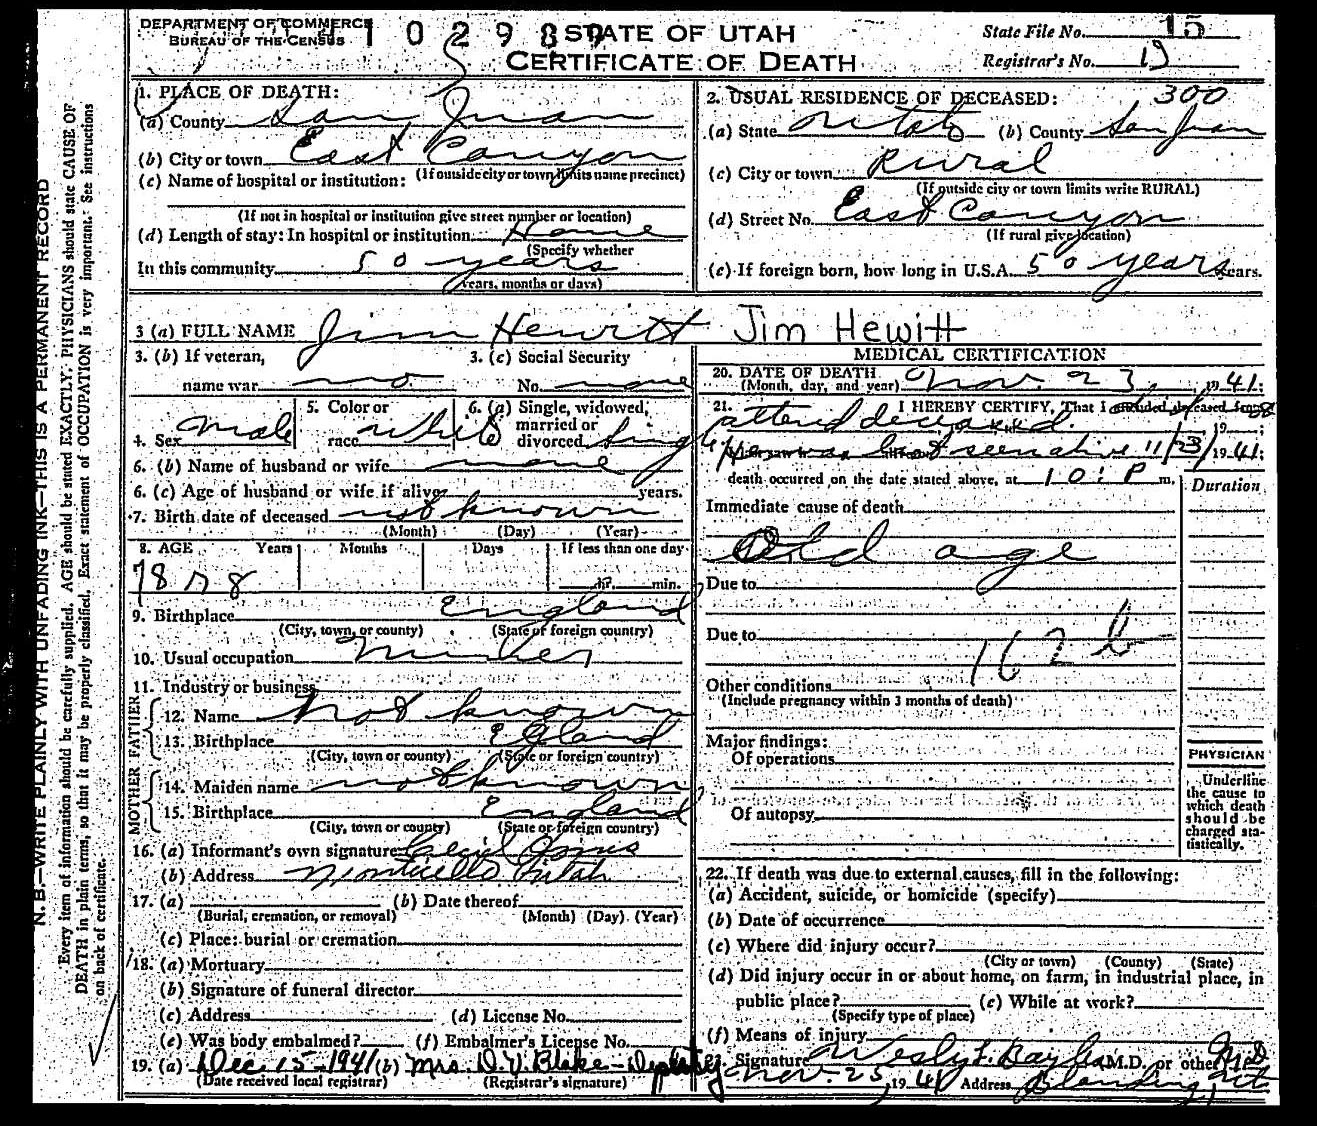 DEPARTMENT OF COMMERCE
BUREAU OF THE CENSUS
STATE OF UTAH
CERTIFICATE OF DEATH
State File No. 15
Registrar's No. 19
1. PLACE OF DEATH:
(a) County San Juan
(b) City or town East Canyon
(If outside city or town limits name precinct)
(c) Name of hospital or institution:
(If not in hospital or institution give street number or location)
(d) Length of stay: In hospital or institution Home
(Specify whether
In this community 50 years
years, months or days)
2. USUAL RESIDENCE OF DECEASED: 300
(a) State Utah (b) County San Juan
(c) City or town Rural
(If outside city or town limits write RURAL)
(d) Street No. East Canyon
(If rural give location)
(e) If foreign born, how long in U.S.A. 50 years years.
3 (a) FULL NAME Jim Hewitt Jim Hewitt
3. (b) If veteran, name war no
3. (c) Social Security No. none
4. Sex Male
5. Color or race white
6. (a) Single, widowed, married or divorced Sing
6. (b) Name of husband or wife none
6. (c) Age of husband or wife if alive years.
7. Birth date of deceased not known
(Month) (Day) (Year)
8. AGE Years Months Days If less than one day
78 hr. min.
9. Birthplace England
(City, town, or county) (State or foreign country)
10. Usual occupation
11. Industry or business
FATHER
12. Name not known
13. Birthplace Egland
(City, town or county) (State or foreign country)
MOTHER
14. Maiden name not known
15. Birthplace England
(City, town or county) (State or foreign country)
16. (a) Informant's own signature
(b) Address Monticello Utah
17. (a) (b) Date thereof
(Burial, cremation, or removal) (Month) (Day) (Year)
(c) Place: burial or cremation
18. (a) Mortuary
(b) Signature of funeral director
(c) Address (d) License No.
(e) Was body embalmed? (f) Embalmer's License No.
19. (a) Dec. 15-1941 (b) Mrs. D. V. Blake - Deputy
(Date received local registrar) (Registrar's signature)
MEDICAL CERTIFICATION
20. DATE OF DEATH
(Month, day, and year) Nov. 23, 1941;
21. I HEREBY CERTIFY, That I did not
attend deceased 19
last seen alive 11/23/1941;
death occurred on the date stated above, at 10: P m.
Duration
Immediate cause of death
Old age
Due to
Due to
162 b
Other conditions
(Include pregnancy within 3 months of death)
Major findings:
Of operations
Of autopsy
PHYSICIAN
Underline
the cause to
which death
should be
charged sta-
tistically.
22. If death was due to external causes, fill in the following:
(a) Accident, suicide, or homicide (specify)
(b) Date of occurrence
(c) Where did injury occur?
(City or town) (County) (State)
(d) Did injury occur in or about home, on farm, in industrial place, in
public place? (e) While at work?
(Specify type of place)
(f) Means of injury
23. Signature M.D. or other M.D
Nov. 25, 1941 Address Blanding, Ut.
N. B.—WRITE PLAINLY WITH UNFADING INK—THIS IS A PERMANENT RECORD
Every item of information should be carefully supplied. AGE should be stated EXACTLY. PHYSICIANS should state CAUSE OF
DEATH in plain terms, so that it may be properly classified. Exact statement of OCCUPATION is very important. See instructions
on back of certificate.